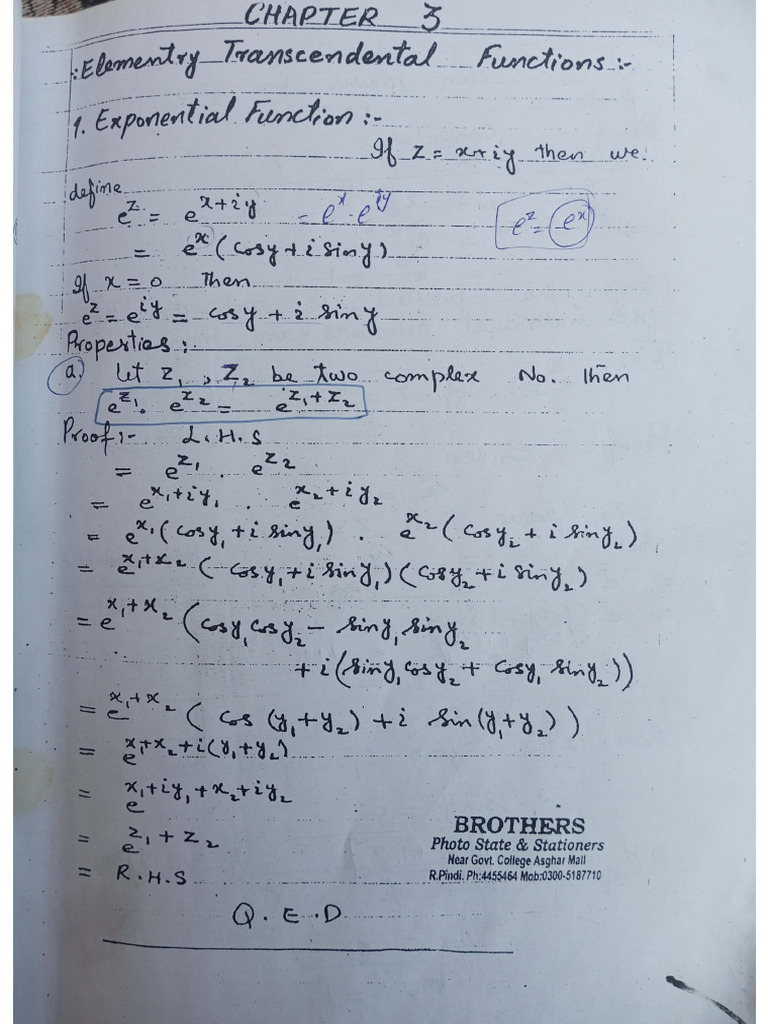 CHAPTER 3
:Elementry Transcendental Functions:-
1. Exponential Function:-
If z = x+iy then we
define
e^z = e^{x+iy} = e^x · e^{iy}
e^z = e^x
= e^x (cosy + i siny)
If x = 0 Then
e^z = e^{iy} = cosy + i siny
Properties:
a. Let z₁, z₂ be two complex No. Then
e^{z₁} · e^{z₂} = e^{z₁+z₂}
Proof:- L.H.S
= e^{z₁} · e^{z₂}
= e^{x₁+iy₁} · e^{x₂+iy₂}
= e^{x₁}(cosy₁ + i siny₁) · e^{x₂}(cosy₂ + i siny₂)
= e^{x₁+x₂} (cosy₁ + i siny₁)(cosy₂ + i siny₂)
= e^{x₁+x₂} (cosy₁cosy₂ - siny₁siny₂
+ i(siny₁cosy₂ + cosy₁siny₂))
= e^{x₁+x₂} (cos(y₁+y₂) + i sin(y₁+y₂))
= e^{x₁+x₂+i(y₁+y₂)}
= e^{x₁+iy₁+x₂+iy₂}
= e^{z₁+z₂}
= R.H.S
Q.E.D
BROTHERS
Photo State & Stationers
Near Govt. College Asghar Mall
R.Pindi. Ph:4455464 Mob:0300-5187710